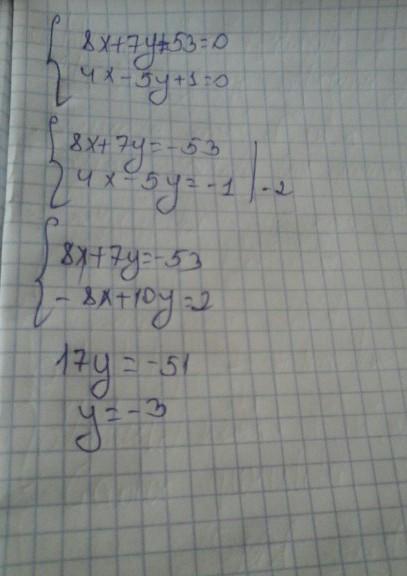 8x+7y+53=0
4x-5y+1=0
8x+7y=-53
4x-5y=-1 | -2
8x+7y=-53
-8x+10y=2
17y=-51
y=-3